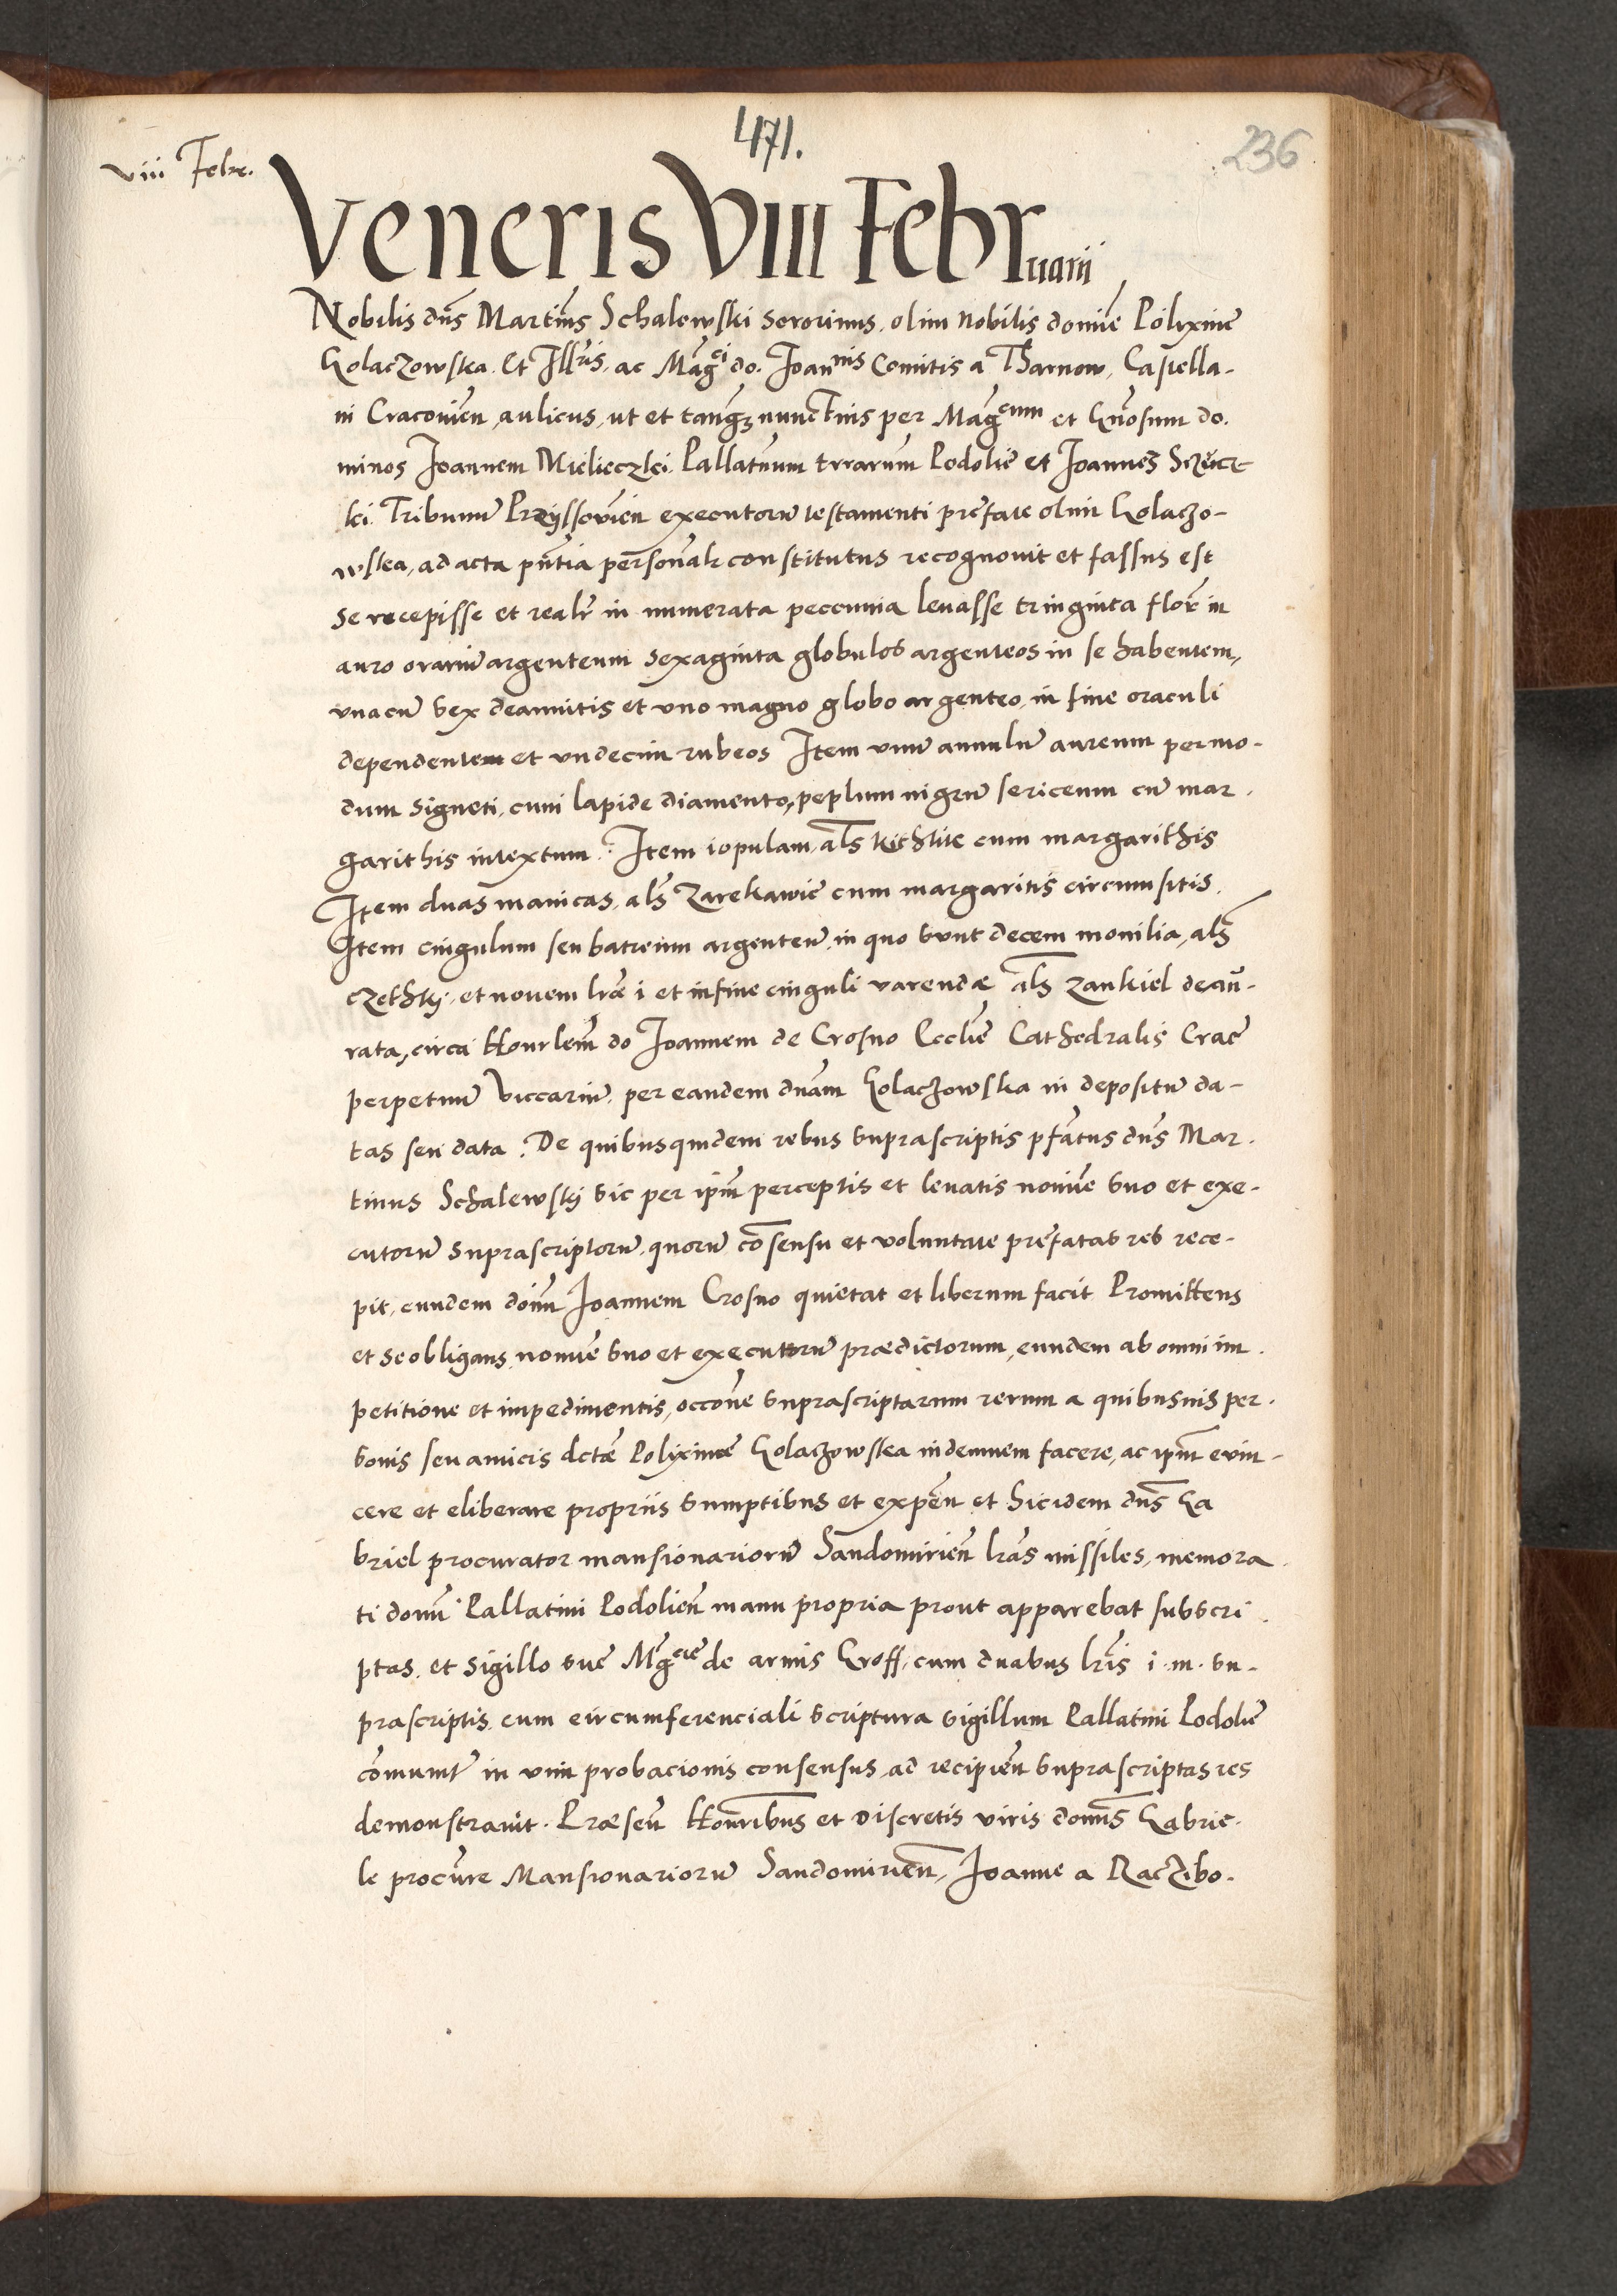 471.
236
viii Febr.
Veneris VIII Februarii
Nobilis dn̄s Martin̄s Schalewski sororinus, olim nobilis domīe Polixine
Golaczowska. Et Illr̄is. ac Maḡci do. Joannis Comitis a Tharnow, Castella-
ni Cracovien̄, aulicus, ut et tanq̄ʒ nunctius per Maḡcum et Gn̄osum do.
minos Joannem Mielieczki Pallatinum terrarum Podolie et Joannem̄
ki. Tribunū executorū testamenti prefate olim Golaczo-
wska, ad acta pn̄tia personalr̄ constitutus recognouit et fassus est
se recepisse et realr̄ in numerata peccunia leuasse tringinta flor̄ in
auro orariū argenteum sexaginta globulos argenteos in se habentem,
vnacū sex deamitis et vno magno globo argenteo, in fine oraculi
dependentem et vndecim rubeos Item vnū annulū aureum per mo-
dum signeti, cum lapide diamento, peplum nigrū sericeum cū mar-
garithis intextum. Item iopulam, al̄s kithlite cum margarithis
Item duas manicas, al̄s Zarekawie cum margaritis circumsitis.
Item cingulum seu batreum argenteū, in quo sunt decem monilia, al̄s
czethki, et novem lr̄e i et in fine cinguli varendæ al̄s zankiel deau-
rata, circa Honrlem̄ do Joannem de Crosno Eccliē Cathedralis Crac̄
perpetuū viccariū, per eandem dn̄am Golaczowska in depositū da-
tas seu data. De quibusquidem rebus suprascriptis pfatus dn̄s Mar-
tinus Schalewskj sic per ipm̄ perceptis et leuatis nomīe suo et exe-
cutorū suprascriptorū, quorū cōsensu et voluntate prefatas res rece-
pit, eundem doīm Joannem Crosno quietat et liberum facit Promittens
et se obligans, nomīe suo et executorū prædictorum, eundem ab omni im-
petitione et impedimentis, occōne suprascriptarum rerum a quibusuis per-
sonis seu amicis dctē Polixinæ Golaczowska indemnem facere, ac ipm̄ evin-
cere et eliberare propriis sumptibus et expēn et hic idem dn̄s Ga
briel procurator mansionariorū Sandomirien̄ lr̄as missiles, memora-
ti domī Pallatini Podolien̄ manu propria prout apparebat subscri-
ptas, et sigillo sue Mḡcie de armis Groff, cum duabus lr̄is i. m. su-
prascriptis, cum circumferenciali scriptura sigillum Pallatini Podolie
cōmunitr̄ in vim probacionis consensus, ad recipien̄ suprascriptas res
demonstrauit. Præsen̄ Honribus et discretis viris domīs Gabrie-
le procūre Mansionariorū Sandomirien̄, Joanne a Raczibo-